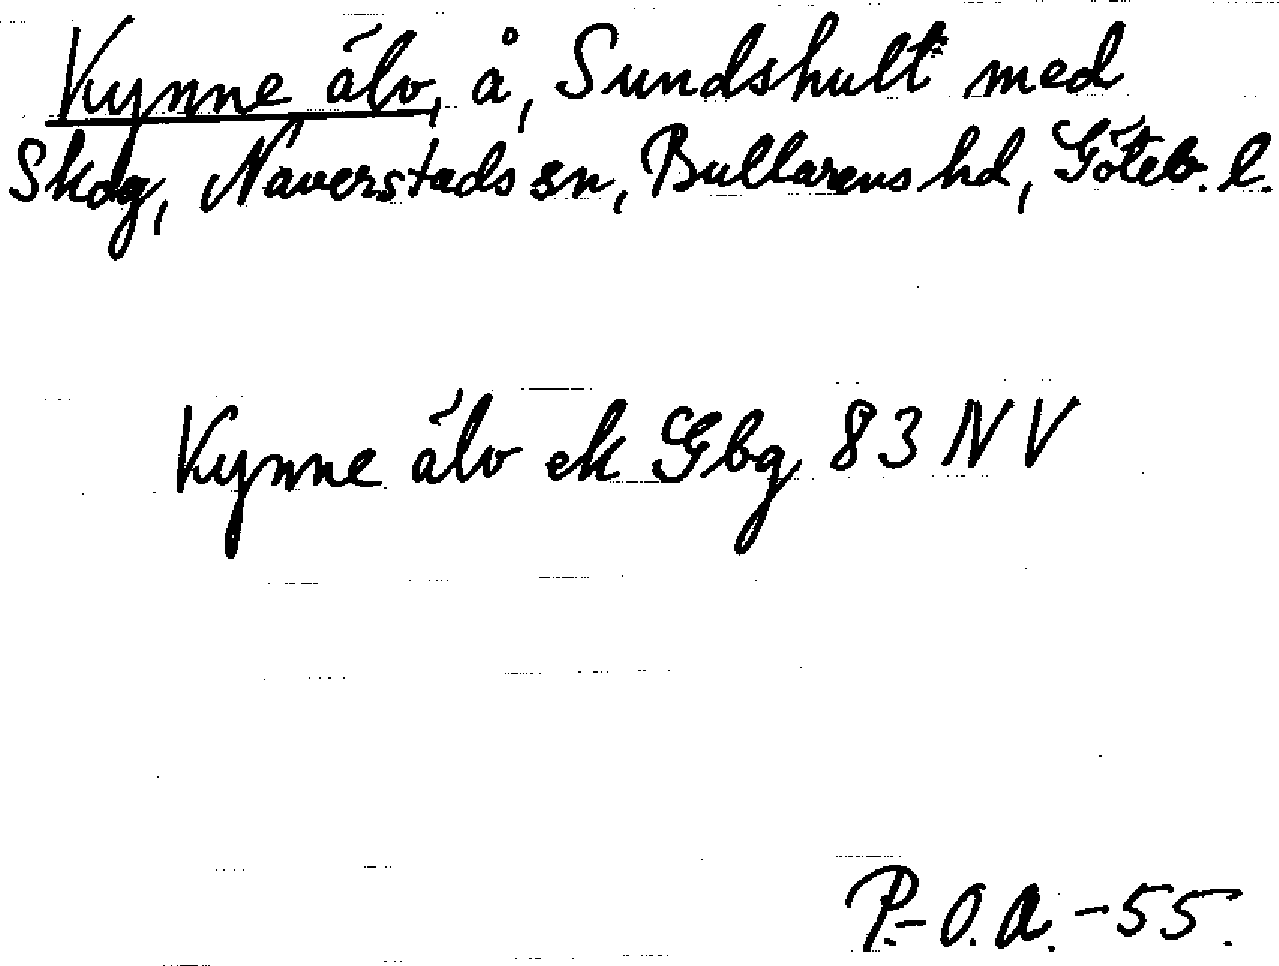 Kynne älv, å, Sundshult med
Skog, Naverstads sn, Bullarens hd, Göteb. l.
Kynne älv ek Gbg 83 NV
P.-O. A. -55.